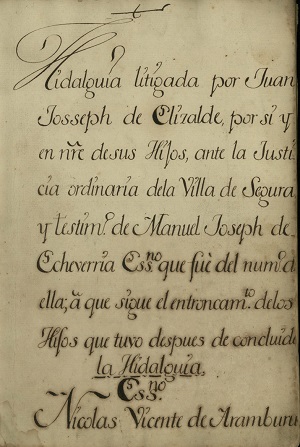 Hidalguia litigada por Juan
Josseph de Elizalde, por si y
en nrẽ de sus Hijos, ante la Justi
cia ordinaria dela Villa de Segura
y testimº. de Manuel Joseph de
Echeverria Essnº que fuè del numº. de
ella; ã que sigue el entroncamtº. delos
Hijos que tuvo despues de concluida
la Hidalguia,
Essnº
Nicolas Vicente de Aramburu